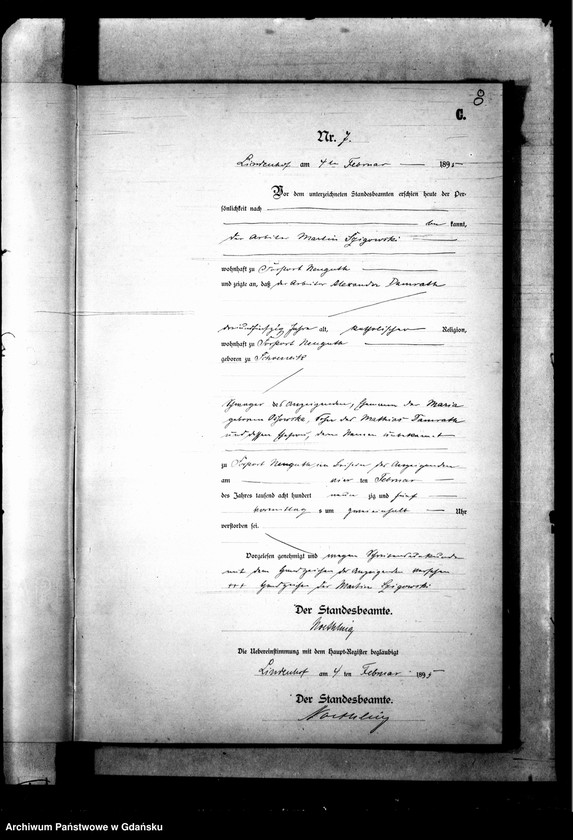 8
C.
Nr. 7.
Lindenhof am 4ten Februar 1895
Vor dem unterzeichneten Standesbeamten erschien heute der Per-
sönlichkeit nach
be kannt,
der Arbeiter Martin Szigowski
wohnhaft zu Neuguth
und zeigte an, daß der Arbeiter Alexander Damrath
Jahre alt, katholischer Religion,
wohnhaft zu Neuguth
geboren zu
Schwager des Anzeigenden, der Maria
geborenen Sohn des Mathias Damrath
und dessen Ehefrau, deren Namen unbekannt
zu Neuguth, im Beisein des Anzeigenden
am vier ten Februar
des Jahres tausend acht hundert neun zig und fünf
Vormittag s um Uhr
verstorben sei.
Vorgelesen genehmigt und wegen Schreibensunkunde
mit dem Handzeichen des Anzeigenden versehen
+++ Handzeichen des Martin Szigowski
Der Standesbeamte.
Noethling
Die Uebereinstimmung mit dem Haupt-Register beglaubigt
Lindenhof am 4 ten Februar 1895
Der Standesbeamte.
Noethling
Archiwum Państwowe w Gdańsku